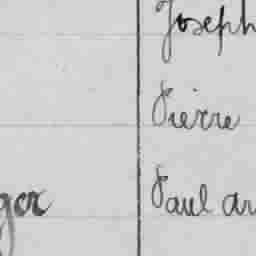 Joseph
Pierre
ger Paul ar